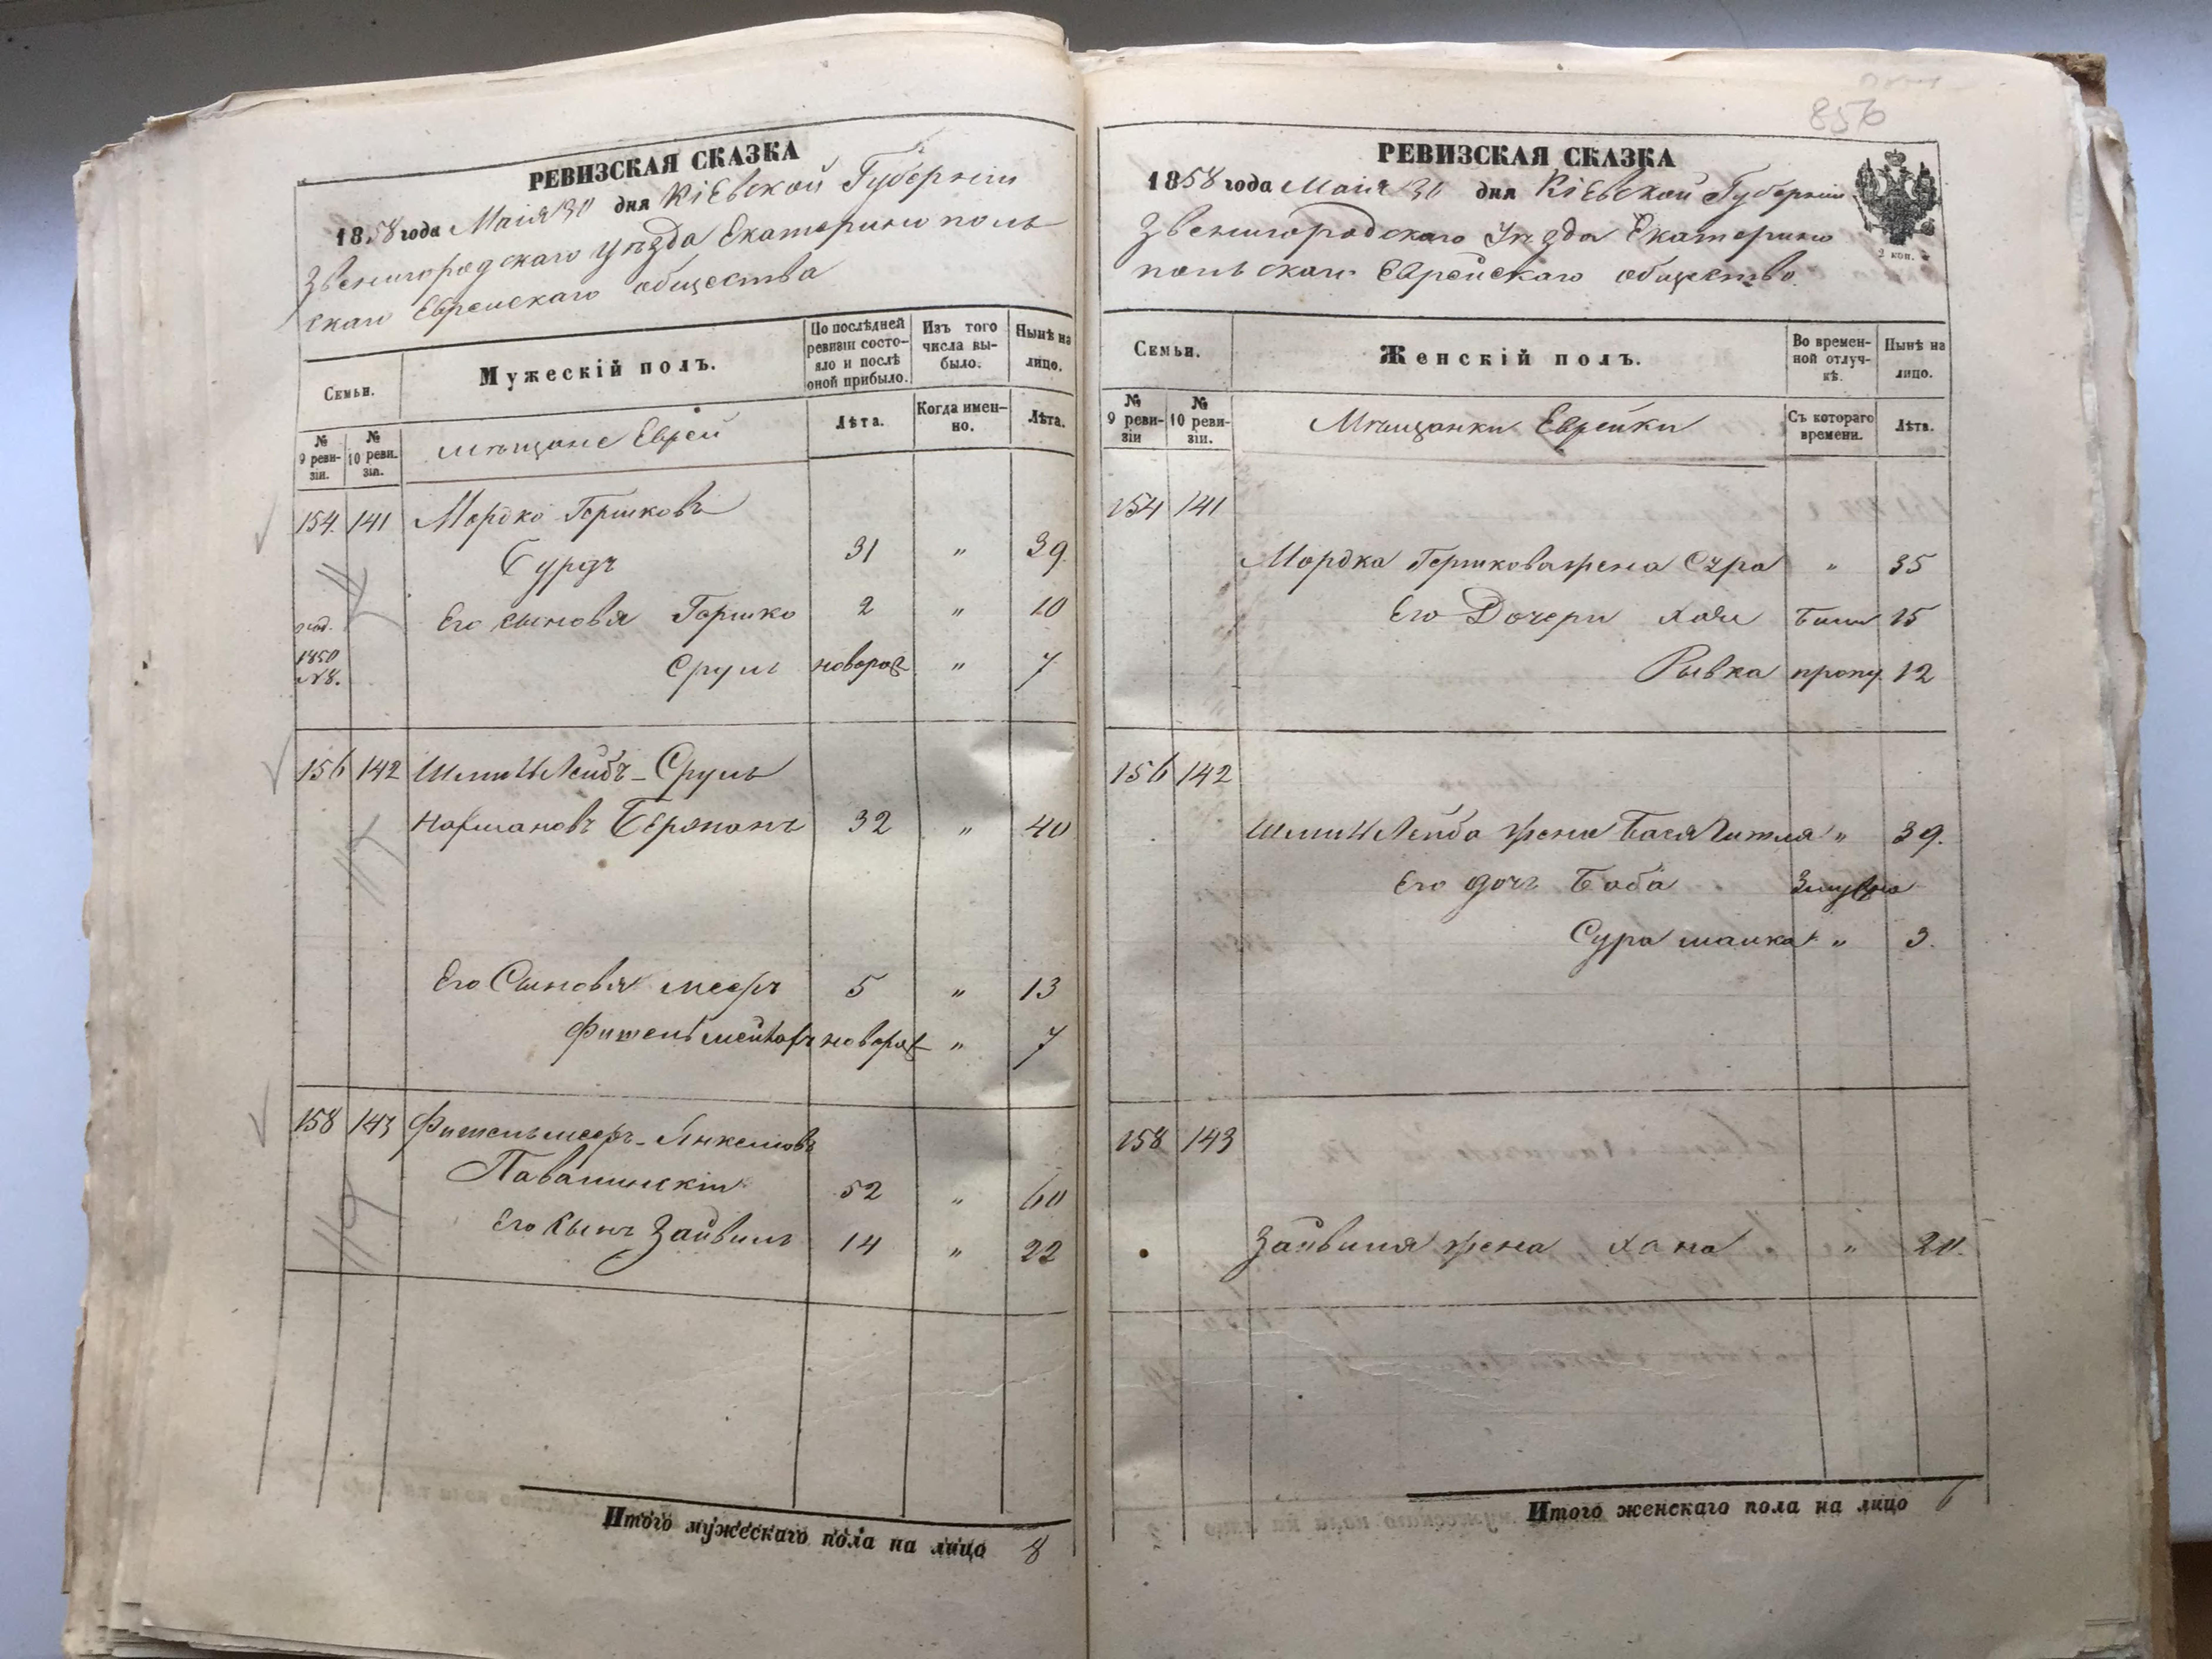 РЕВИЗСКАЯ СКАЗКА
1858 года Маія 30 дня Кіевской Губерніи
Звенигородскаго Уѣзда Екатеринополь
скаго Еврейскаго общества
Семьи.
Мужескій полъ.
По послѣдней ревизіи состо-
яло и послѣ
оной прибыло.
Изъ того
числа вы-
было.
Нынѣ на
лицо.
№ 9 реви-
зіи.
№ 10 реви-
зіи.
мѣщане Евреи
Лѣта.
Когда имен-
но.
Лѣта.
154. 141 Мордко Гершковъ
31 " 39.
Его сыновя Гершко 2 " 10
1850
№8.
Сруль новорож " 7
156 142 Лейбъ-Сруль
32 " 40
Его Сыновя Меерь 5 " 13
Фишель новорож " 7
158 143 Фишель Меерь-Янкелювъ
52 " 60
Его Сынъ Зайвиль 14 " 22
Итого мужескаго пола на лицо 8
856
РЕВИЗСКАЯ СКАЗКА
1858 года Маія 30 дня Кіевской Губерніи
Звенигородскаго Уѣзда Екатерино
польскаго Еврейскаго общества.
2 коп.
Семьи.
Женскій полъ.
Во времен-
ной отлуч-
кѣ.
Нынѣ на
лицо.
№ 9 реви-
зіи
№ 10 реви-
зіи.
Мѣщанки Еврейки
Съ котораго
времени.
Лѣта.
154 141
Мордка Гершкова жена Сура " 35
Его Дочери Хая были 15
Рывка пропу. 12
156 142
Лейба жена Бася Гитля " 39.
Его дочь Баба Замужна
Сура Малка " 3.
158 143
Зайвиля жена Хана " 20.
Итого женскаго пола на лицо 6